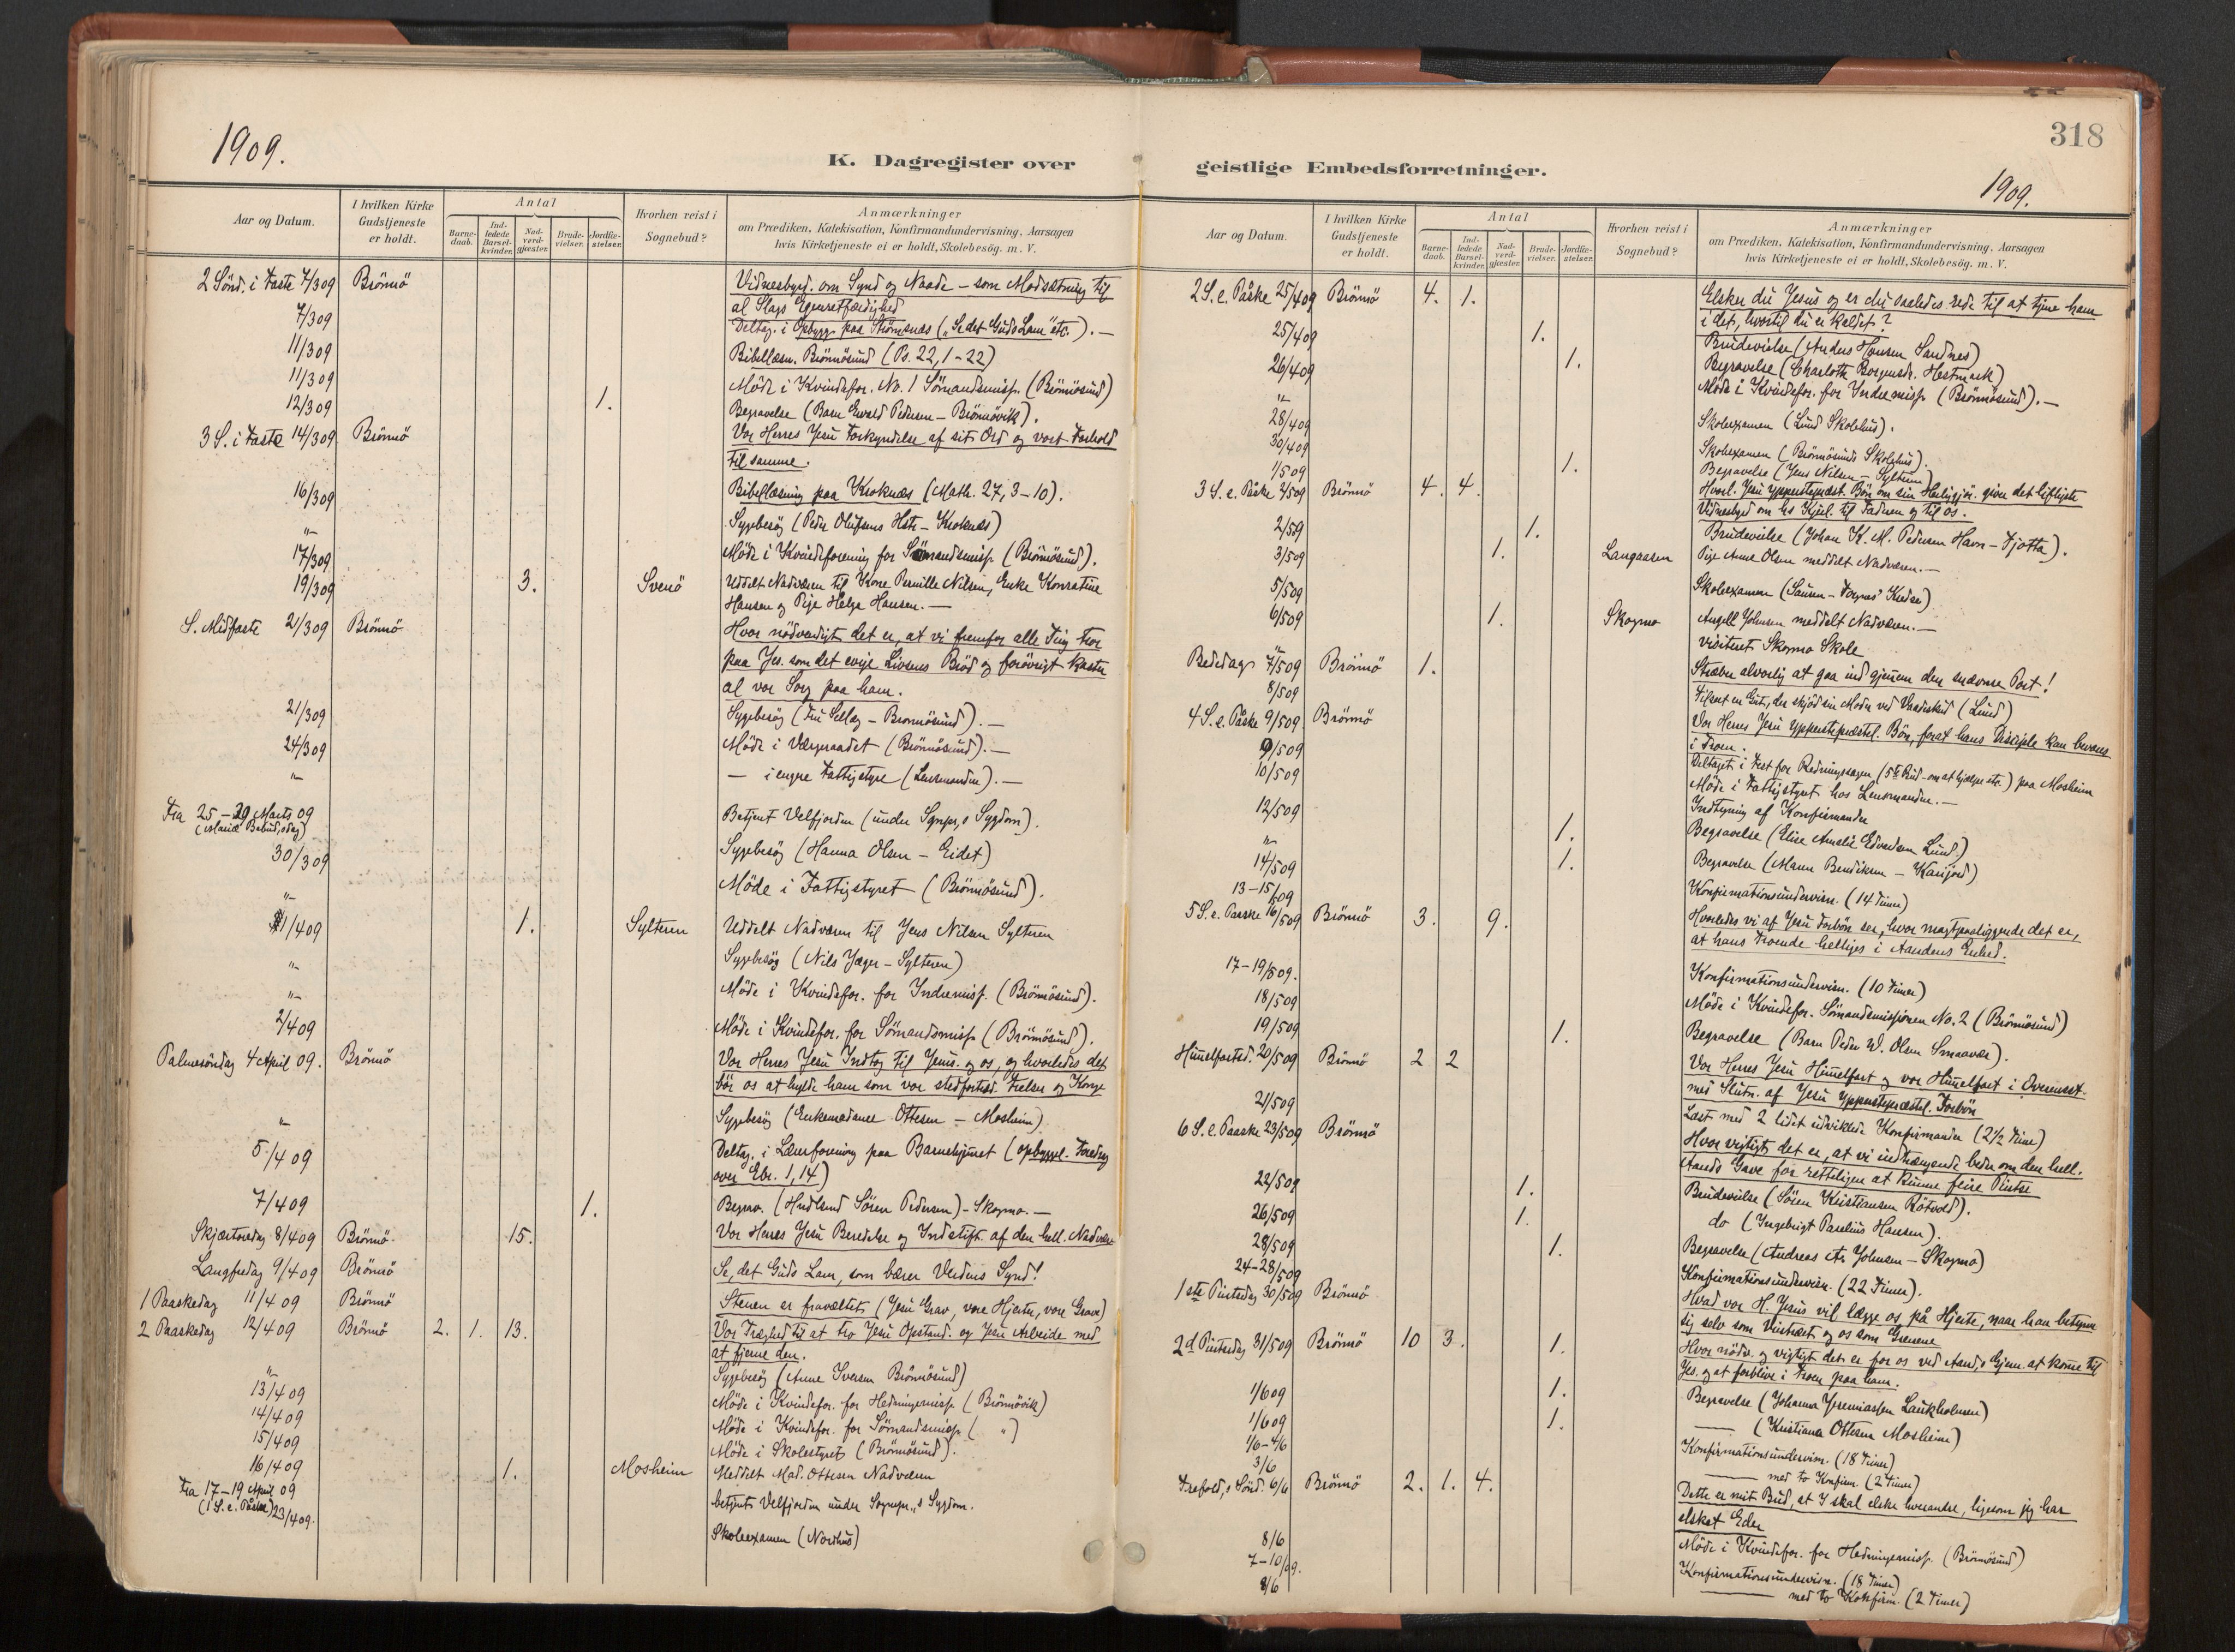 1909.
K. Dagregister over
Aar og Datum.
I hvilken Kirke Gudstjeneste er holdt.
Antal
Barne-daab.
Ind-ledede Barsel-kvinder.
Nad-verd-gjester.
Brude-vielser.
Jordfæ-stelser.
Hvorhen reist i Sognebud?
Anmærkninger
om Prædiken, Katekisation, Konfirmandundervisning, Aarsagen
hvis Kirketjeneste ei er holdt, Skolebesög. m. V.
2 Sönd. i Faste 7/309 Brönnö Vidnesbyrd. om Synd og Naade – som Modsætning til
al Slags Egenretfærdighed
7/309 Deltag. i Opbygg. paa Strömsnæs („Se det Guds Lam" etc.). –
11/309 Bibellæsn. Brönnösund (Ps. 22, 1–22)
11/309 Möde i Kvindefor. No. 1 Sömandsmiss. (Brönnösund)
12/309 1. Begravelse (Barn Ewald Pedersen – Brönnövik).
3 S. i Faste 14/309 Brönnö Vor Herres Jesu Forkyndelse af sit Ord og vort Forhold
til samme.
16/309 Bibellæsning paa Kroknæs (Math. 27, 3–10).
" Sygebesög (Peder Olufsens Hstr – Kroknæs)
17/309 Möde i Kvindeforening for Sömandsmiss. (Brönnösund).
19/309 3. Svenö Uddelt Nadveren til Kone Pernille Nilsen, Enke Konratine
Hansen og Pige Helga Hansen. –
S. Midfaste 21/309 Brönnö Hvor nödvendigt det er, at vi fremfor alle Ting tror
paa Jes. som det evige Livsens Bröd og forövrigt kaste
al vor Sorg paa ham.
21/309 Sygebesög (Fru Selleg – Brönnösund). –
24/309 Möde i Værgeraadet (Brönnösund). –
" — i engre Fattigstyre (Lensmanden). –
Fra 25–29 Marts 09 Betjent Velfjorden (under Sgnpr.s Sygdom).
(Mariæ Bebud.sdag)
30/309 Sygebesög (Hanna Olsen – Eidet)
" Möde i Fattigstyret (Brönnösund).
1/409 1. Sylteren Uddelt Nadveren til Jens Nilsen Sylteren
" Sygebesög (Nils Jæger – Sylteren)
" Möde i Kvindefor. for Indremiss. (Brönnösund).
2/409 Möde i Kvindefor. for Sömandsmiss. (Brönnösund).
Palmesöndag 4 April 09. Brönnö Vor Herres Jesu Indtog til Jerus. og os, og hvorledes det
bör os at hylde ham som vor stedfortræd. Frelser og Konge
" Sygebesög (Enkemadame Ottesen – Mosheim)
5/409 Deltag. i Lærerforening paa Barnehjemmet (opbyggel. Foredrag
over Ebr. 1,14)
7/409 1. Begrav. (Husmand Sören Pedersen) – Skogmo. –
Skjærtorsdag 8/409 Brönnö 15. Vor Herres Jesu Beredelse og Indstift. af den hell. Nadver
Langfredag 9/409 Brönnö Se, det Guds Lam, som bærer Verdens Synd!
1 Paaskedag 11/409 Brönnö Stenen er fravæltet (Jesu Grav, vore Hjerter, vore Grave)
2 Paaskedag 12/409 Brönnö 2. 1. 13. Vor Træghed til at tro Jesu Opstand. og Jesu Arbeide med
at fjerne den.
" Sygebesög (Anne Iversen Brönnösund)
13/409 Möde i Kvindefor. for Hedningemiss. (Brönnövik)
14/409 Möde i Kvindefor. for Sömandsmiss. ( " )
15/409 Möde i Skolestyret (Brönnösund).
16/409 1. Mosheim Meddelt Mad. Ottesen Nadveren
Fra 17–19 April 09 betjent Velfjorden under Sognepr.s Sygdom.
(1 S. e. Påske) 23/409. Skoleexamen (Nordhus)
318
geistlige Embedsforretninger.
1909.
Aar og Datum.
I hvilken Kirke Gudstjeneste er holdt.
Antal
Barne-daab.
Ind-ledede Barsel-kvinder.
Nad-verd-gjester.
Brude-vielser.
Jordfæ-stelser.
Hvorhen reist i Sognebud?
Anmærkninger
om Prædiken, Katekisation, Konfirmandundervisning, Aarsagen
hvis Kirketjeneste ei er holdt, Skolebesög. m. V.
2 S. e. Påske 25/409 Brönnö 4. 1. Elsker du Jesus og er du saaledes rede til at tjene ham
i det, hvortil du er kaldet?
25/409 1. Brudevielse (Anders Hansen Sandnes)
26/409 1. Begravelse (Charlotte Hestmark)
" Möde i Kvindefor. for Indremiss. (Brönnösund). –
28/409 Skoleexamen (Lund Skolehus).
30/409 Skoleexamen (Brönnösunds Skolehus).
1/509 1. Begravelse (Jens Nilsen – Sylteren)
3 S. e. Påske 2/509 Brönnö 4. 4. Hvorl. Jesu ypperstepræst. Bön om sin Herliggjör. giver det lifligste
Vidnesbyrd om hs Kjærl. til Faderen og til os.
2/509 1. Brudevielse (Johan K. M. Pedersen Havn – Tjotta).
3/509 1. Langaasen Pige Anne Olsen meddelt Nadveren. –
5/509 Skoleexamen (Sauren – Torgnes' Kreds)
6/509 1. Skogmo Angell Johnsen meddelt Nadveren. –
" visiteret Skogmo Skole
Bededag 7/509 Brönnö 1. Stræber alvorlig at gaa ind gjennem den snævre Port!
8/509 Tilsnakt en Gut, der skjöd sin Moder ved Vaadeskud (Lund)
4 S. e. Påske 9/509 Brönnö Vor Herres Jesu ypperstepræstel. Bön, forat hans Disciple kan bevares
i Troen.
9/509 Deltaget i Fest for Redningssagen (5te Bud – om at hjælpe etc.) paa Mosheim
10/509 Möde i Fattigstyret hos Lensmanden. –
12/509 Indtegning af Konfirmander
" 1. Begravelse (Elise Amalie Edvardsen Lund.)
14/509 1. Begravelse (Maren Bendiksen – Kanjord)
13–15/509 Konfirmationsundervisn. (14 Timer)
5 S. e. Paaske 16/509 Brönnö 3. 9. Hvorledes vi af Jesu Forbön ser, hvor magtpaaliggende det er,
at hans Troende helliges i Aandens Enhed.
17–19/509. Konfirmationsundervisn. (10 Timer)
18/509 Möde i Kvindefor. Sömandsmissionen No. 2 (Brönnösund)
19/509 1. Begravelse (Barn Peder W. Olsen Smaavær).
Himmelfartsd. 20/509 Brönnö 2 2 Vor Herres Jesu Himmelfart og vor Himmelfart i Overensst.
med Slutn. af Jesu ypperstepræstel. Forbön
21/509 Læst med 2 lidet udviklede Konfirmander (2 1/2 Time)
6 S. e. Paaske 23/509 Brönnö Hvor vigtigt det er, at vi indtrængende beder om den hell.
Aands Gave for retteligen at kunne feire Pintse
22/509 1. Brudevielse (Sören Kristiansen Rötvold).
26/509 1. do (Ingebrigt Parelius Hansen).
28/509 1. Begravelse (Andreas Ar. Johnsen – Skogmo)
24–28/509 Konfirmationsundervisn. (22 Timer).
1ste Pintsedag 30/509 Brönnö Hvad vor H. Jesus vil lægge os på Hjerte, naar han betegner
sig selv som Vintræet og os som Grenene
2d Pintsedag 31/509 Brönnö 10 3. 1. Hvor nödv. og vigtigt det er for os ved Aand.s Gjern. at komme til
Jes. og at forblive i Troen paa ham.
1/609 1. Begravelse (Johanna Jeremiassen Laukholmen)
1/609 1. — (Kristiana Ottesen Mosheim)
1/6–4/6 Konfirmationsundervisn. (18 Timer)
3/6 — med to Konfirm. (2 Timer)
Trefold.s Sönd. 6/6 Brönnö 2. 1. 4. Dette er mit Bud, at I skal elske hverandre, ligesom jeg har
elsket Eder
8/6 Möde i Kvindefor. for Hedningemiss. (Brönnösund)
7–10/09. Konfirmationsundervisn. (18 Timer)
8/6 — med to Konfirm. (2 Timer)